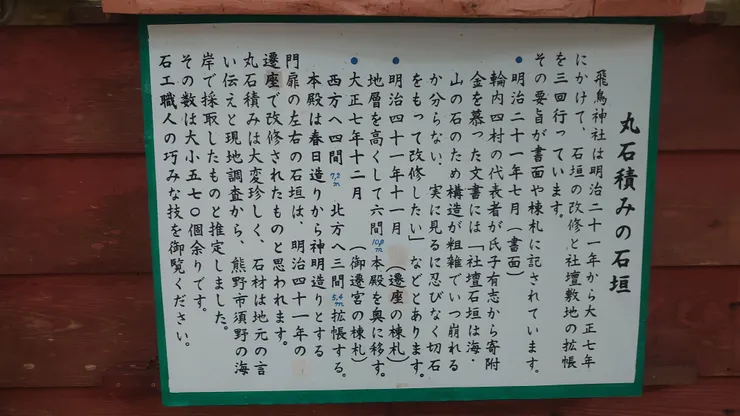 丸石積みの石垣
飛鳥神社は明治二十一年から大正七年
にかけて、石垣の改修と社壇敷地の拡帳
を三回行っています。
その要旨が書面や棟札に記されています。
●明治二十一年七月(書面)
輪内四村の代表者が氏子有志から寄附
金を募った文書には「社壇石垣は海・
山の石のため構造が粗雑でいつ崩れる
か分らない、実に見るに忍びなく切石
をもって改修したい」などとあります。
●明治四十一年十一月(遷座の棟札)
地層を高くして六間10.8m本殿を奥に移す。
●大正七年十二月(御遷宮の棟札)
西方へ四間7.2m北方へ三間5.4m拡帳する。
本殿は春日造りから神明造りとする
門扉の左右の石垣は、明治四十一年の
遷座で改修されたものと思われます。
丸石積みは大変珍しく、石材は地元の言
い伝えと現地調査から、熊野市須野の海
岸で採取したものと推定しました。
その数は大小五七〇個余りです。
石工職人の巧みな技を御覧ください。